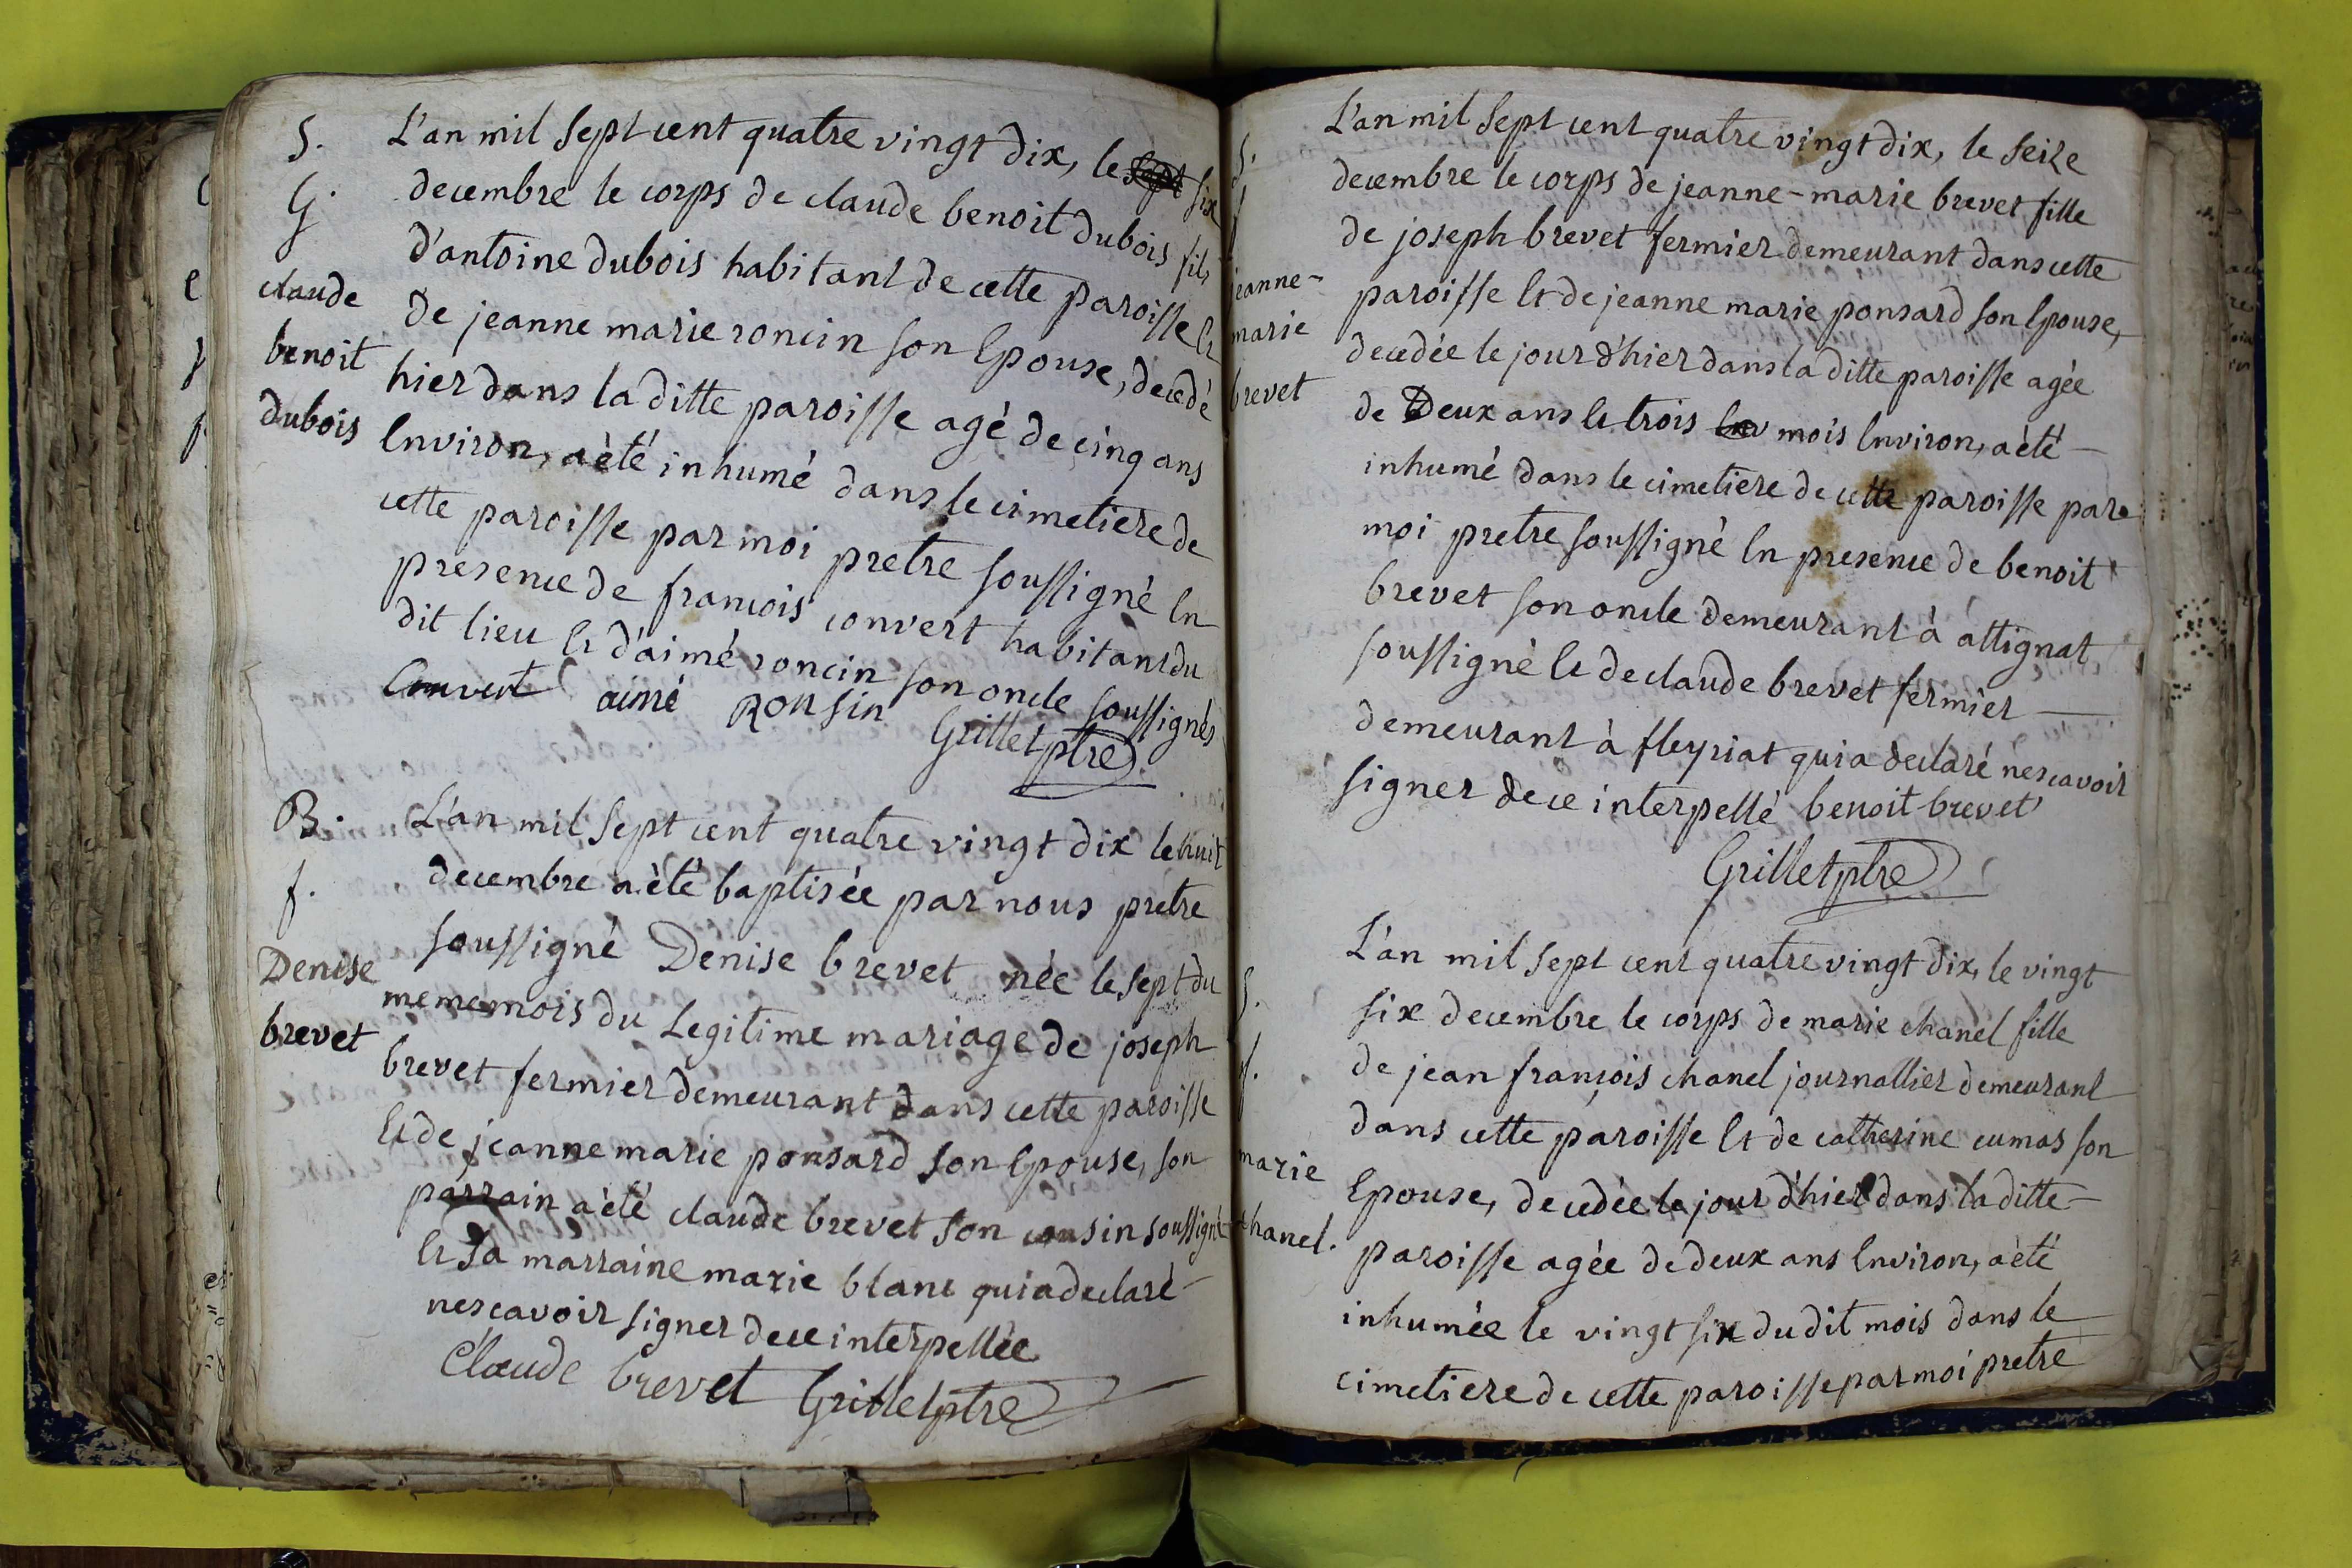 S.
G.
claude
benoit
dubois
L'an mil sept cent quatre vingt dix, le sept six
decembre le corps de claude benoit dubois fils
d'antoine dubois habitant de cette paroisse et
de jeanne marie roncin son epouse, decedé
hier dans la ditte paroisse agé de cinq ans
environ, a èté inhumé dans le cimetiere de
cette paroisse par moi pretre soussigné en
presence de francois convert habitant du
dit lieu et d'aimé roncin son oncle soussignés
Convert aimé RONSin
Grillet ptre
B.
f.
Denise
brevet
L'an mil sept cent quatre vingt dix le huit
decembre a èté baptisée par nous pretre
soussigné Denise brevet née le sept du
meme mois du Legitime mariage de joseph
brevet fermier demeurant dans cette paroisse
et de jeanne marie ponsard son epouse, son
parrain a èté claude brevet son cousin soussigné
et sa marraine marie blanc qui a declaré
ne scavoir signer de ce interpellée
Claude brevet Grillet ptre
S.
f
jeanne-
marie
brevet
L'an mil sept cent quatre vingt dix, le seize
decembre le corps de jeanne-marie brevet fille
de joseph brevet fermier demeurant dans cette
paroisse et de jeanne marie ponsard son epouse,
decedée le jour d'hier dans la ditte paroisse agée
de Deux ans et trois env mois environ, a èté
inhumé dans le cimetiere de cette paroisse par
moi pretre soussigné en presence de benoit
brevet son oncle demeurant à attignat,
soussigné et de claude brevet fermier
demeurant à fleyriat qui a declaré ne scavoir
signer de ce interpellé benoit brevet
Grillet ptre
S.
f.
marie
chanel.
L'an mil sept cent quatre vingt dix, le vingt
six decembre le corps de marie chanel fille
de jean françois chanel journallier demeurant
dans cette paroisse et de catherine cumas son
epouse, decedée le jour d'hier dans la ditte
paroisse agée de deux ans environ, a èté
inhumée le vingt six du dit mois dans le
cimetiere de cette paroisse par moi pretre